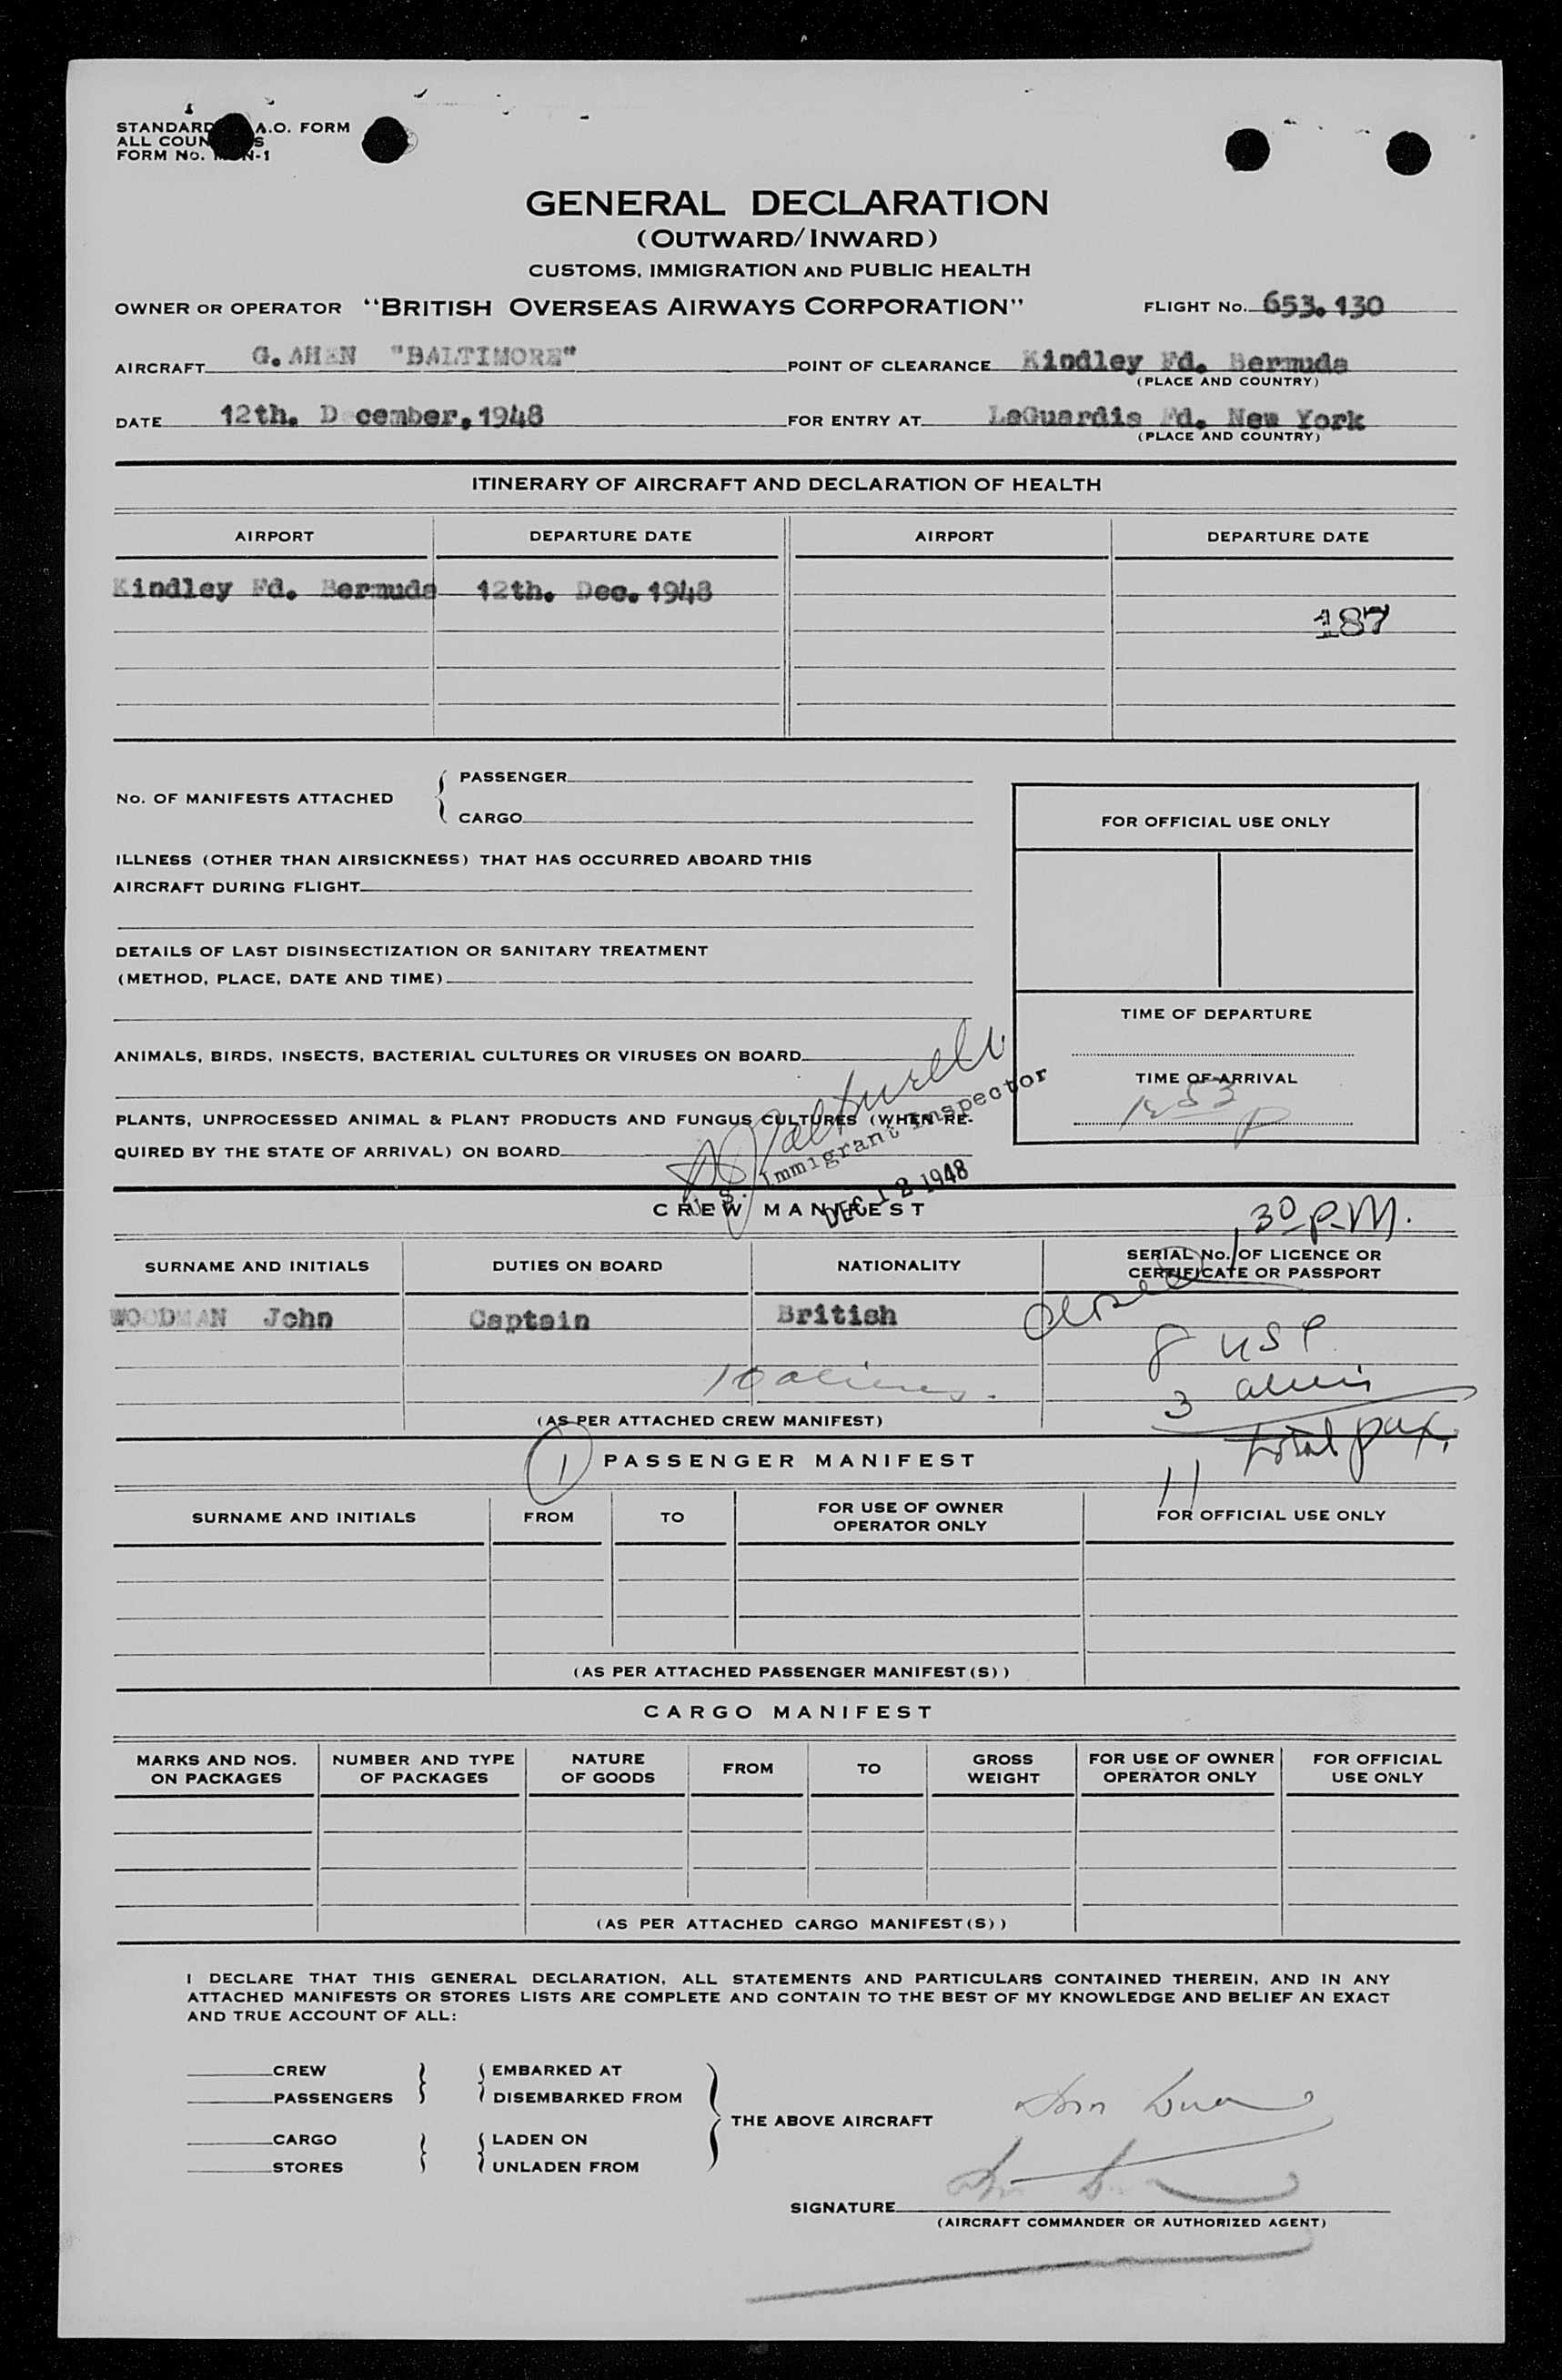 STANDARD A.O. FORM
ALL COUN S
FORM No. N-1
GENERAL DECLARATION
(OUTWARD/INWARD)
CUSTOMS, IMMIGRATION AND PUBLIC HEALTH
OWNER OR OPERATOR "BRITISH OVERSEAS AIRWAYS CORPORATION" FLIGHT No. 653.130
AIRCRAFT G.AHEN "BALTIMORE" POINT OF CLEARANCE Kindley Fd. Bermuda
(PLACE AND COUNTRY)
DATE 12th. D cember, 1948 FOR ENTRY AT LaGuardia Fd. New York
(PLACE AND COUNTRY)
ITINERARY OF AIRCRAFT AND DECLARATION OF HEALTH
AIRPORT DEPARTURE DATE AIRPORT DEPARTURE DATE
Kindley Fd. Bermuda 12th. Dec. 1948
187
No. OF MANIFESTS ATTACHED { PASSENGER
CARGO
FOR OFFICIAL USE ONLY
ILLNESS (OTHER THAN AIRSICKNESS) THAT HAS OCCURRED ABOARD THIS
AIRCRAFT DURING FLIGHT
DETAILS OF LAST DISINSECTIZATION OR SANITARY TREATMENT
(METHOD, PLACE, DATE AND TIME)
TIME OF DEPARTURE
ANIMALS, BIRDS, INSECTS, BACTERIAL CULTURES OR VIRUSES ON BOARD
TIME OF ARRIVAL
PLANTS, UNPROCESSED ANIMAL & PLANT PRODUCTS AND FUNGUS CULTURES (WHEN RE-
QUIRED BY THE STATE OF ARRIVAL) ON BOARD
U. S. Immigrant Inspector
DEC 12 1948
CREW MANIFEST
30 P.M.
SURNAME AND INITIALS DUTIES ON BOARD NATIONALITY SERIAL No. OF LICENCE OR
CERTIFICATE OR PASSPORT
WOODMAN John Captain British
8 USC
10 aliens.
3 aliens
(AS PER ATTACHED CREW MANIFEST)
11 total pax.
1 PASSENGER MANIFEST
SURNAME AND INITIALS FROM TO FOR USE OF OWNER
OPERATOR ONLY FOR OFFICIAL USE ONLY
(AS PER ATTACHED PASSENGER MANIFEST(S))
CARGO MANIFEST
MARKS AND NOS. NUMBER AND TYPE NATURE FROM TO GROSS FOR USE OF OWNER FOR OFFICIAL
ON PACKAGES OF PACKAGES OF GOODS WEIGHT OPERATOR ONLY USE ONLY
(AS PER ATTACHED CARGO MANIFEST(S))
I DECLARE THAT THIS GENERAL DECLARATION, ALL STATEMENTS AND PARTICULARS CONTAINED THEREIN, AND IN ANY
ATTACHED MANIFESTS OR STORES LISTS ARE COMPLETE AND CONTAIN TO THE BEST OF MY KNOWLEDGE AND BELIEF AN EXACT
AND TRUE ACCOUNT OF ALL:
CREW EMBARKED AT
PASSENGERS DISEMBARKED FROM
THE ABOVE AIRCRAFT
CARGO LADEN ON
STORES UNLADEN FROM
SIGNATURE
(AIRCRAFT COMMANDER OR AUTHORIZED AGENT)